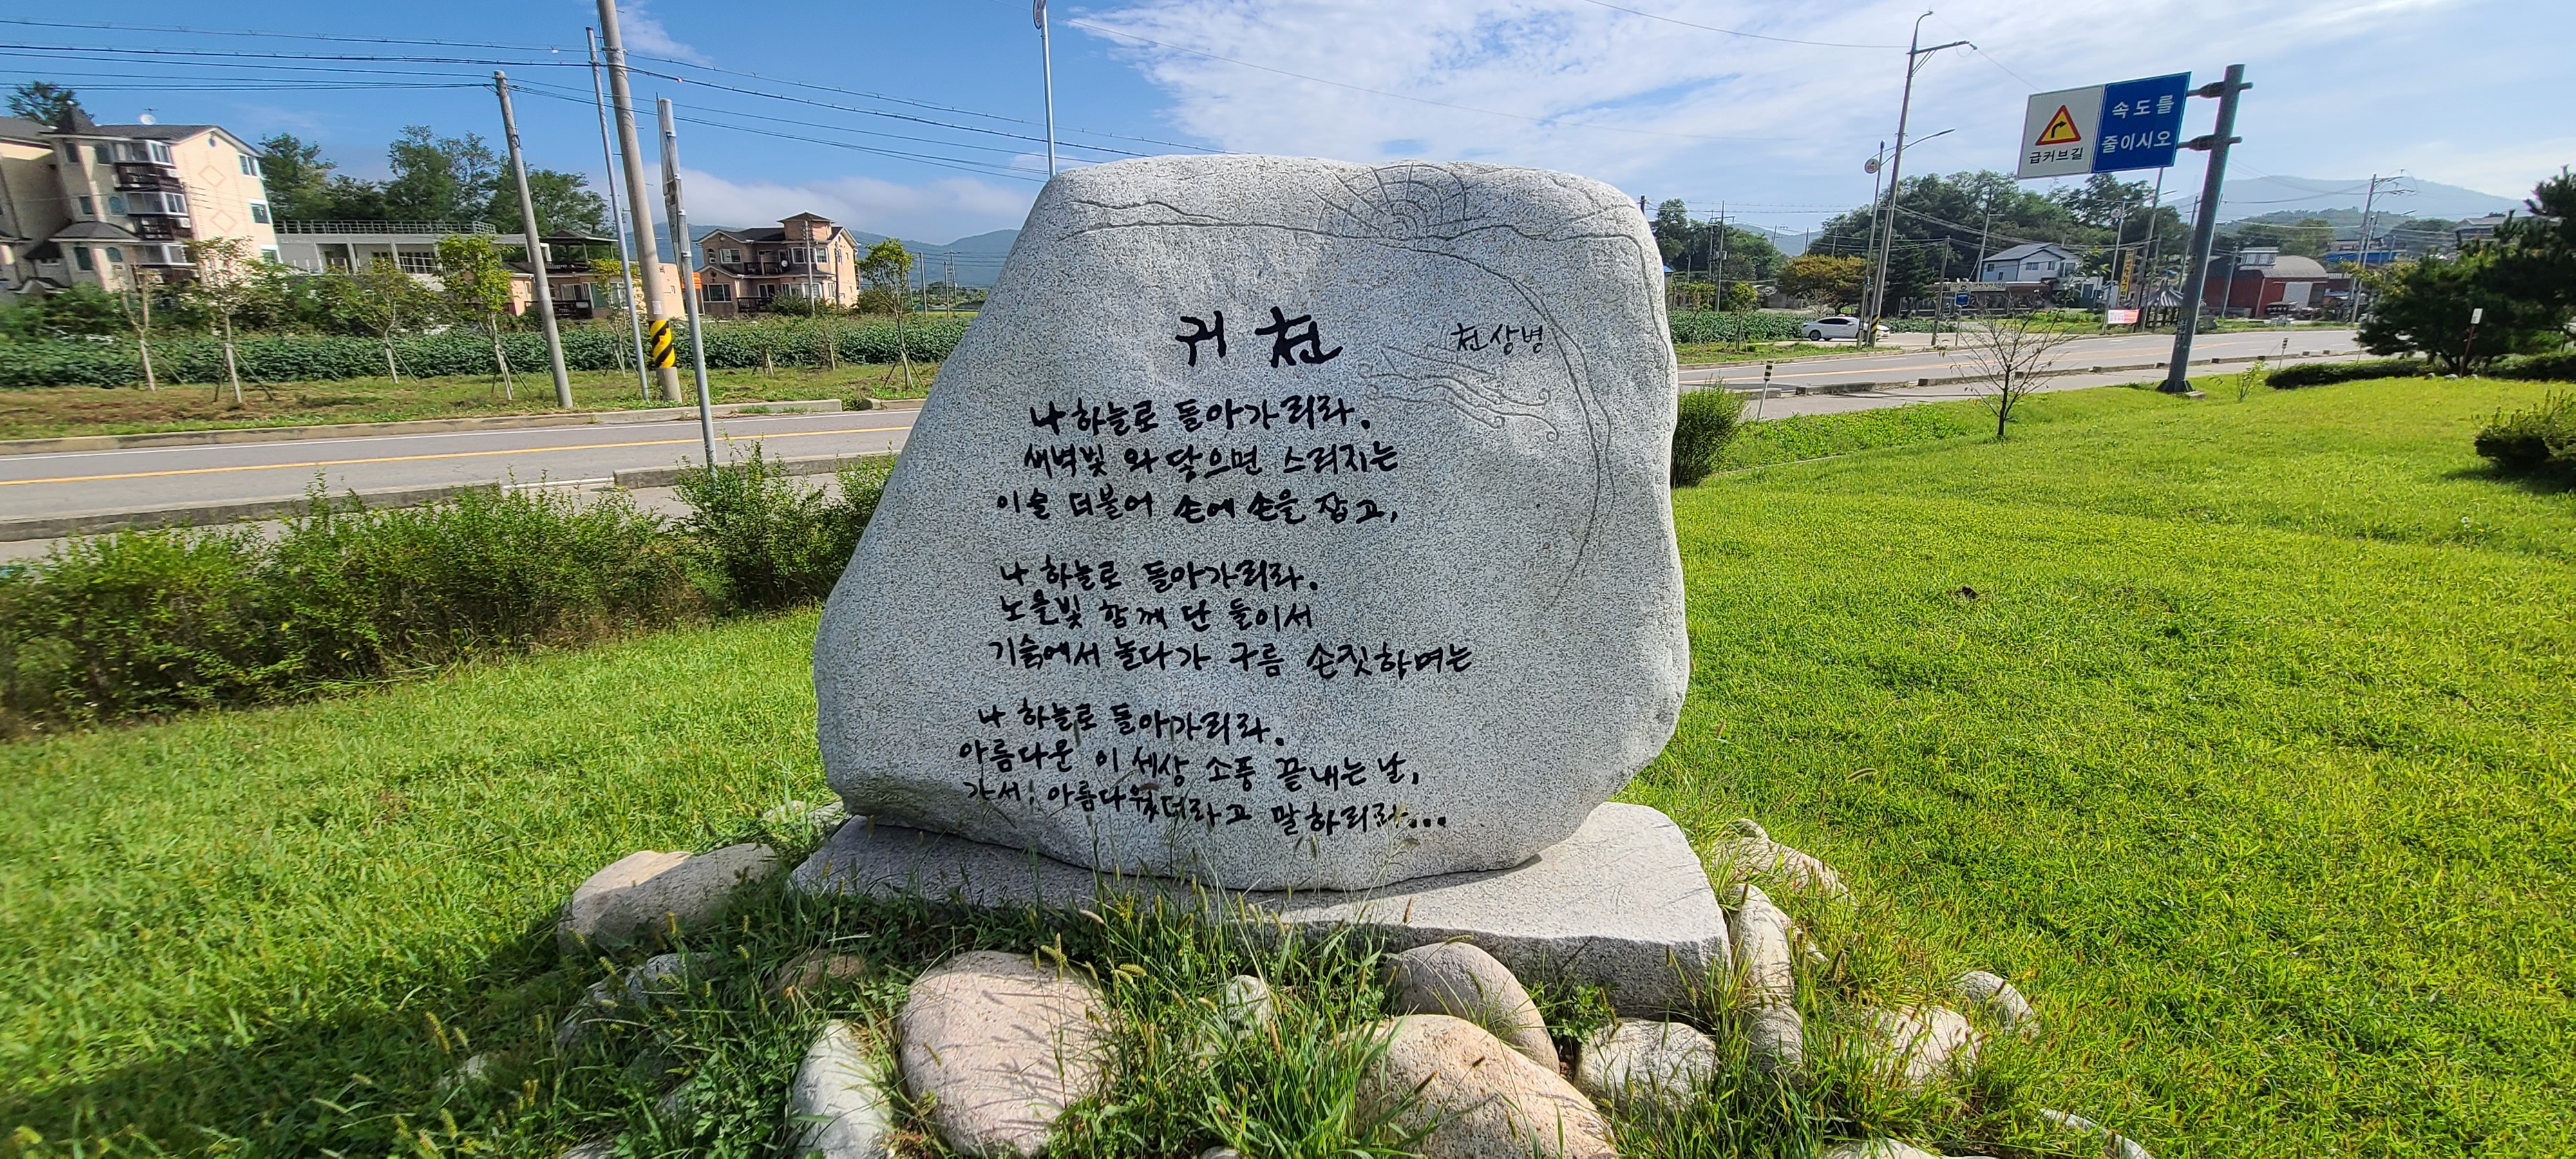 귀천
천상병
나 하늘로 돌아가리라.
새벽빛 와 닿으면 스러지는
이슬 더불어 손에 손을 잡고,
나 하늘로 돌아가리라.
노을빛 함께 단 둘이서
기슭에서 놀다가 구름 손짓하며는
나 하늘로 돌아가리라.
아름다운 이 세상 소풍 끝내는 날,
가서, 아름다웠더라고 말하리라...
급커브길
속도를
줄이시오